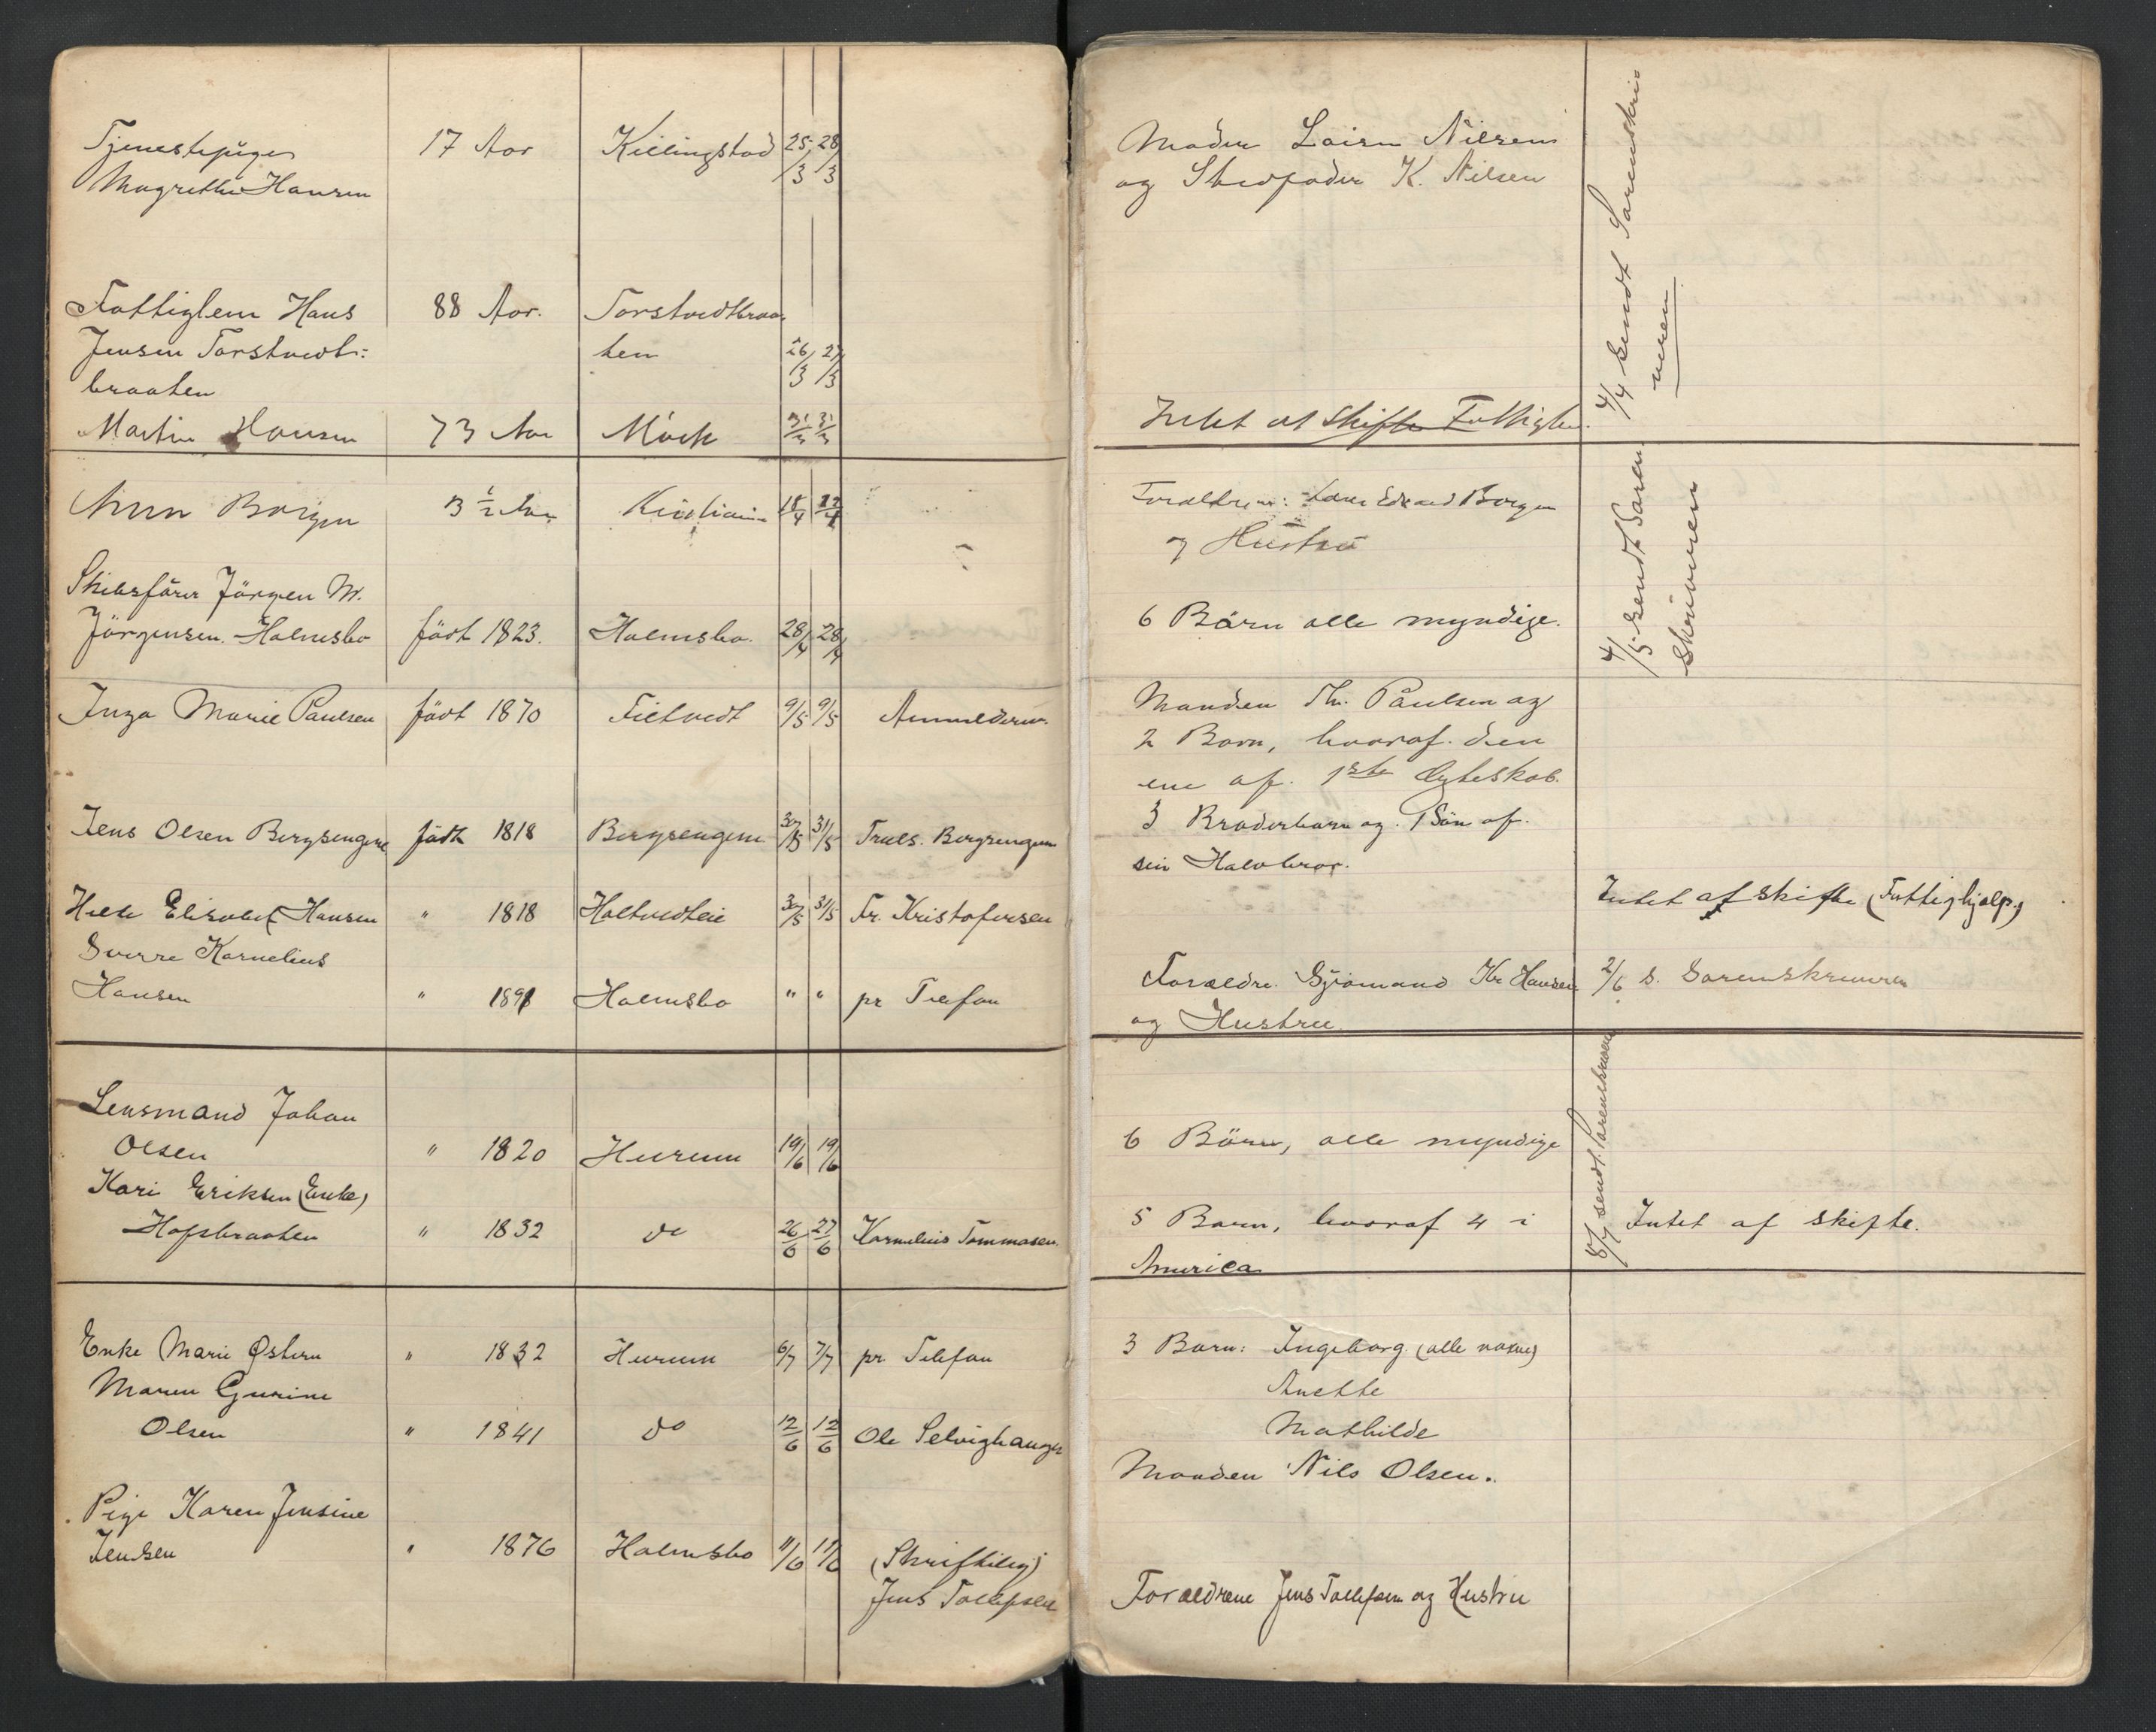 Tjenestepige 17 Aar Killingstad 25/3 28/3
Magrethe Hansen
Fattiglem Hans 88 Aar. Torstvedtbraa-
Jensen Torstvedt= ten 26/3 27/3
braaten
Martin Hansen 73 Aar 31/3 31/3
Borgen 3 1/2 Aar
Skibsfører Jörgen M.
Jörgensen. Holmsbo födt 1823. Holmsbo. 28/4 28/4
Inga Marie Paulsen födt 1870 Tietvedt 9/5 9/5 Anmelderen.
Jens Olsen Bergsengene födt 1818 Bergsengene 30/5 31/5 Truls. Bergsengen
Elisabet Hansen " 1818 Holtvedteie 30/5 31/5 Fr. Kristofersen
Sverre Kornelius
Hansen " 1898 Holmsbo " " pr Telefon
Lensmand Johan
Olsen " 1820 Hurum 19/6 19/6
Kari Eriksen (Enke)
Hofsbraaten " 1832 do 26/6 27/6 Kornelius Tommasen.
Enke Marie Østern " 1832 Hurum 6/7 7/7 pr. Telefon
Maren Gurine
Olsen " 1841 do 12/6 12/6 Ole Selvighaugen
Pige Karen Jensine
Jensen " 1876 Holmsbo 11/6 11/6 (Skriftlig)
Jens Tollefsen
Moder Nilsen
og Stedfader K. Nilsen
4/4 sendt Sorenskri-
veren
Intet at skifte Fattiglem.
Forældrene: Edvard Borgen
og Hustru
6 Börn alle myndige.
4/5 sendt Soren
skriveren
Manden Th. Paulsen og
2 Barn, hvoraf den
ene af. 1ste Ægteskab.
3 Broderbarn og 1 Sön af.
sin Halvbror.
Intet af skifte (Fattighjælp.)
Forældre. Sjömand Kr Hansen 2/6 s. Sorenskriveren
og Hustru.
6 Börn, alle myndige
8/7 sendt. Sorenskriveren
5 Barn, hvoraf 4 i Intet af skifte.
America
3 Barn: Ingeborg (alle voksne)
Anette
Mathilde
Manden Nils Olsen.
Forældrene Jens Tollefsen og Hustru